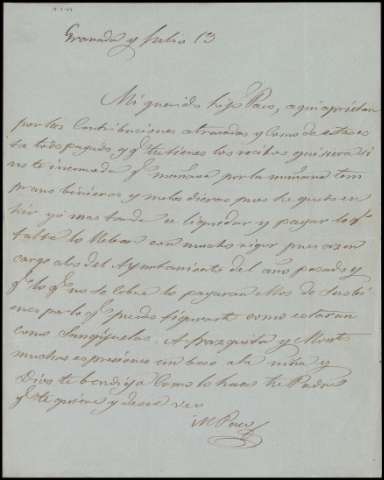 Granada y Julio 13
Mi querido hijo Paco, aqui aprietan
por las Contribuciones atrasadas y como de este
ta todo pagado y qe tu tienes los recibos quisiera si
no te incomoda qe mañana por la mañana tem
prano binieras y melos dieras pues he quedo en
hir yo mas tarde a liquidar y pagar lo qe
falte lo llevan con mucho rigor pues asen
cargo alos del Ayuntamiento del año pasado y
qe lo qe no se cobre lo pagaran ellos de sus
por lo qe puedes figurarte como estaran
como Sanguijuelas. A frasquita y
muchas espresiones un beso ala niña y
Dios te bendiga como lo hace tu Padre
qe te quiere y desea ver
M Paco